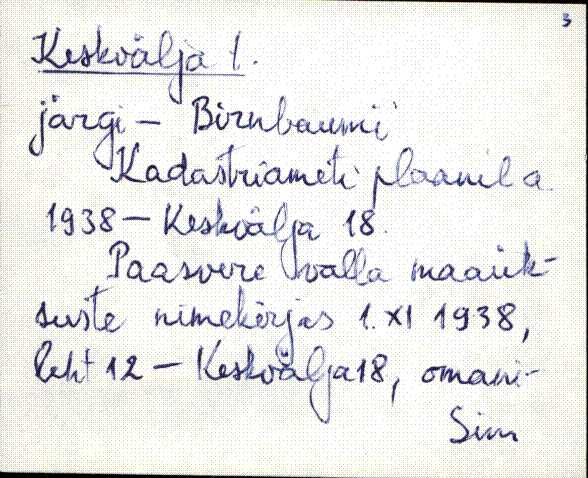 3
Keskvälja t.
järgi – Birnbaumi
Kadastriameti plaanil a
1938 – Keskvälja 18.
Paasvere valla maaük-
suste nimekirjas 1. XI 1938,
leht 12 – Keskvälja 18, omani-
Sim